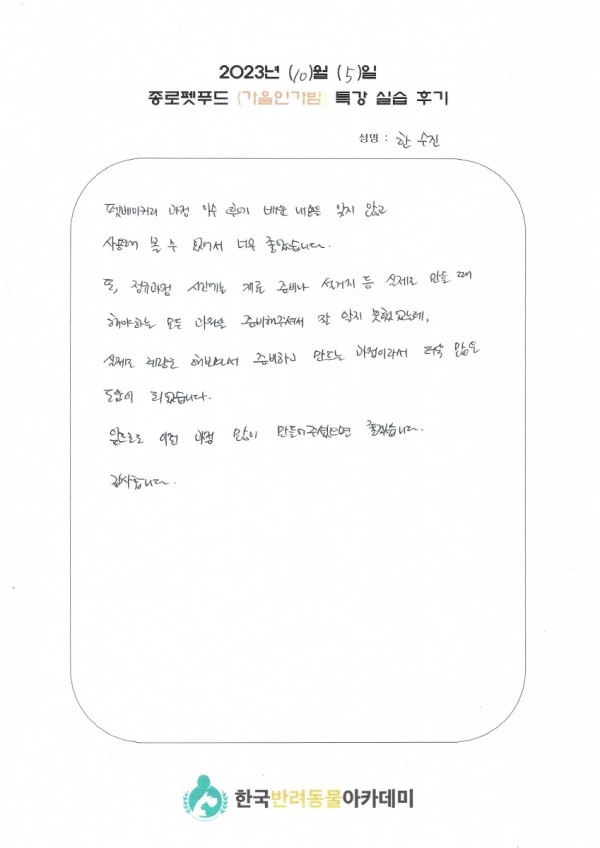 2023년 (10)월 (5)일
종로펫푸드 (가을인가밤) 특강 실습 후기
성명 : 한 수진
펫베이커리 과정 이수 후에 배운 내용을 잊지 않고
사용해 볼 수 있어서 너무 좋았습니다.
또, 정규과정 시간에는 재료 준비나 설거지 등 실제로 만들 때
해야하는 모든 과정을 준비해주셔서 잘 알지 못했었는데,
실제로 계량을 해보면서 준비하고 만드는 과정이라서 더욱 많은
도움이 되었습니다.
앞으로도 이런 과정 많이 만들어주셨으면 좋겠습니다.
감사합니다.
한국반려동물아카데미